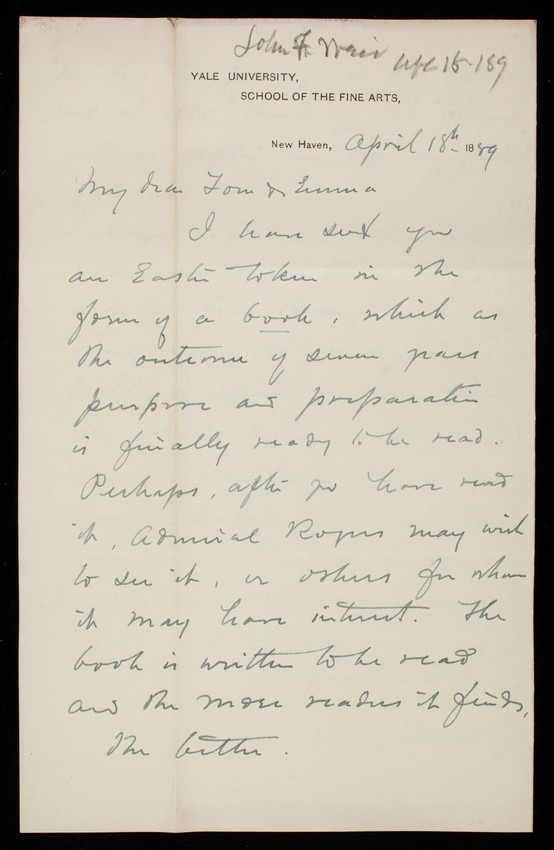 John F. Weir Apl 18-189
YALE UNIVERSITY,
SCHOOL OF THE FINE ARTS,
New Haven, April 18th 1889
My dear Tom & Emma
I have sent you
an Easter token in the
form of a book, which as
the outcome of seven years
purpose and preparation
is finally ready to be read.
Perhaps, after you have read
it, Admiral Rogers may wish
to see it, or others for whom
it may have interest. The
book is written to be read
and the more readers it finds,
the better.